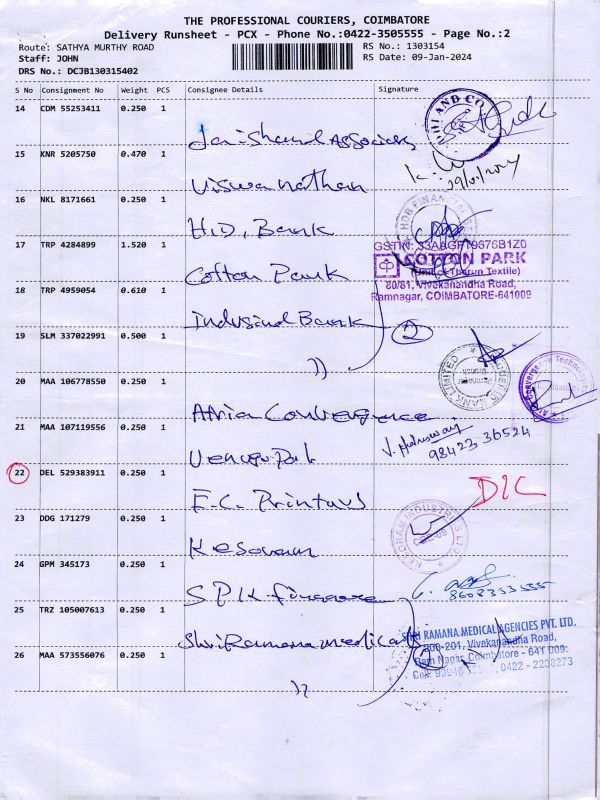 THE PROFESSIONAL COURIERS, COIMBATORE
Delivery Runsheet - PCX - Phone No.:0422-3505555 - Page No.:2
Route: SATHYA MURTHY ROAD
RS No.: 1303154
Staff: JOHN
RS Date: 09-Jan-2024
DRS No.: DCJB130315402
S No Consignment No Weight PCS Consignee Details Signature
14 CDM 55253411 0.250 1
Jaishand Associates
15 KNR 5205750 0.470 1
Viswanathan
16 NKL 8171661 0.250 1
H.D. Bank
17 TRP 4284899 1.520 1
GSTIN: 33AAGF19676B1Z0
COTTON PARK
(Unit of Tharun Textile)
80/81, Vivekanandha Road,
Ramnagar, COIMBATORE-641009
Cotton Park
18 TRP 4959054 0.610 1
Indusind Bank
2
19 SLM 337022991 0.500 1
20 MAA 106778550 0.250 1
Atria Convergence
21 MAA 107119556 0.250 1
98423 36524
22 DEL 529383911 0.250 1
E.C. Printars
23 DDG 171279 0.250 1
Kesoram
KESORAM INDUSTRIES LTD
24 GPM 345173 0.250 1
S.P.K. Finance
8608353555
25 TRZ 105007613 0.250 1
Shri Ramana medicals
SHRI RAMANA MEDICAL AGENCIES PVT. LTD.
200-201, Vivekanandha Road,
Ram Nagar, Coimbatore - 641 009.
0422 - 2238273
26 MAA 573556076 0.250 1